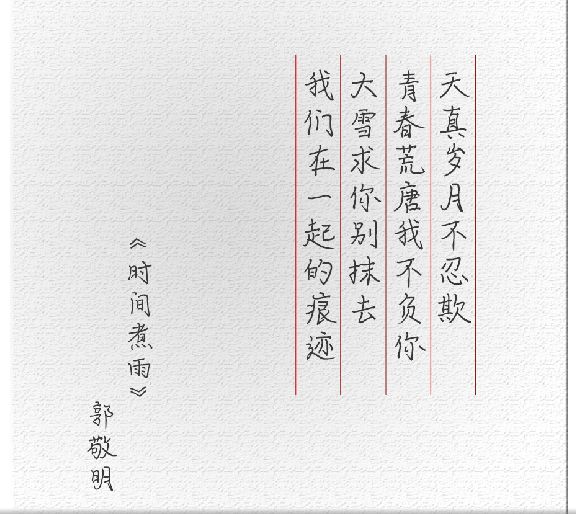 天真岁月不忍欺
青春荒唐我不负你
大雪求你别抹去
我们在一起的痕迹
《时间煮雨》
郭敬明